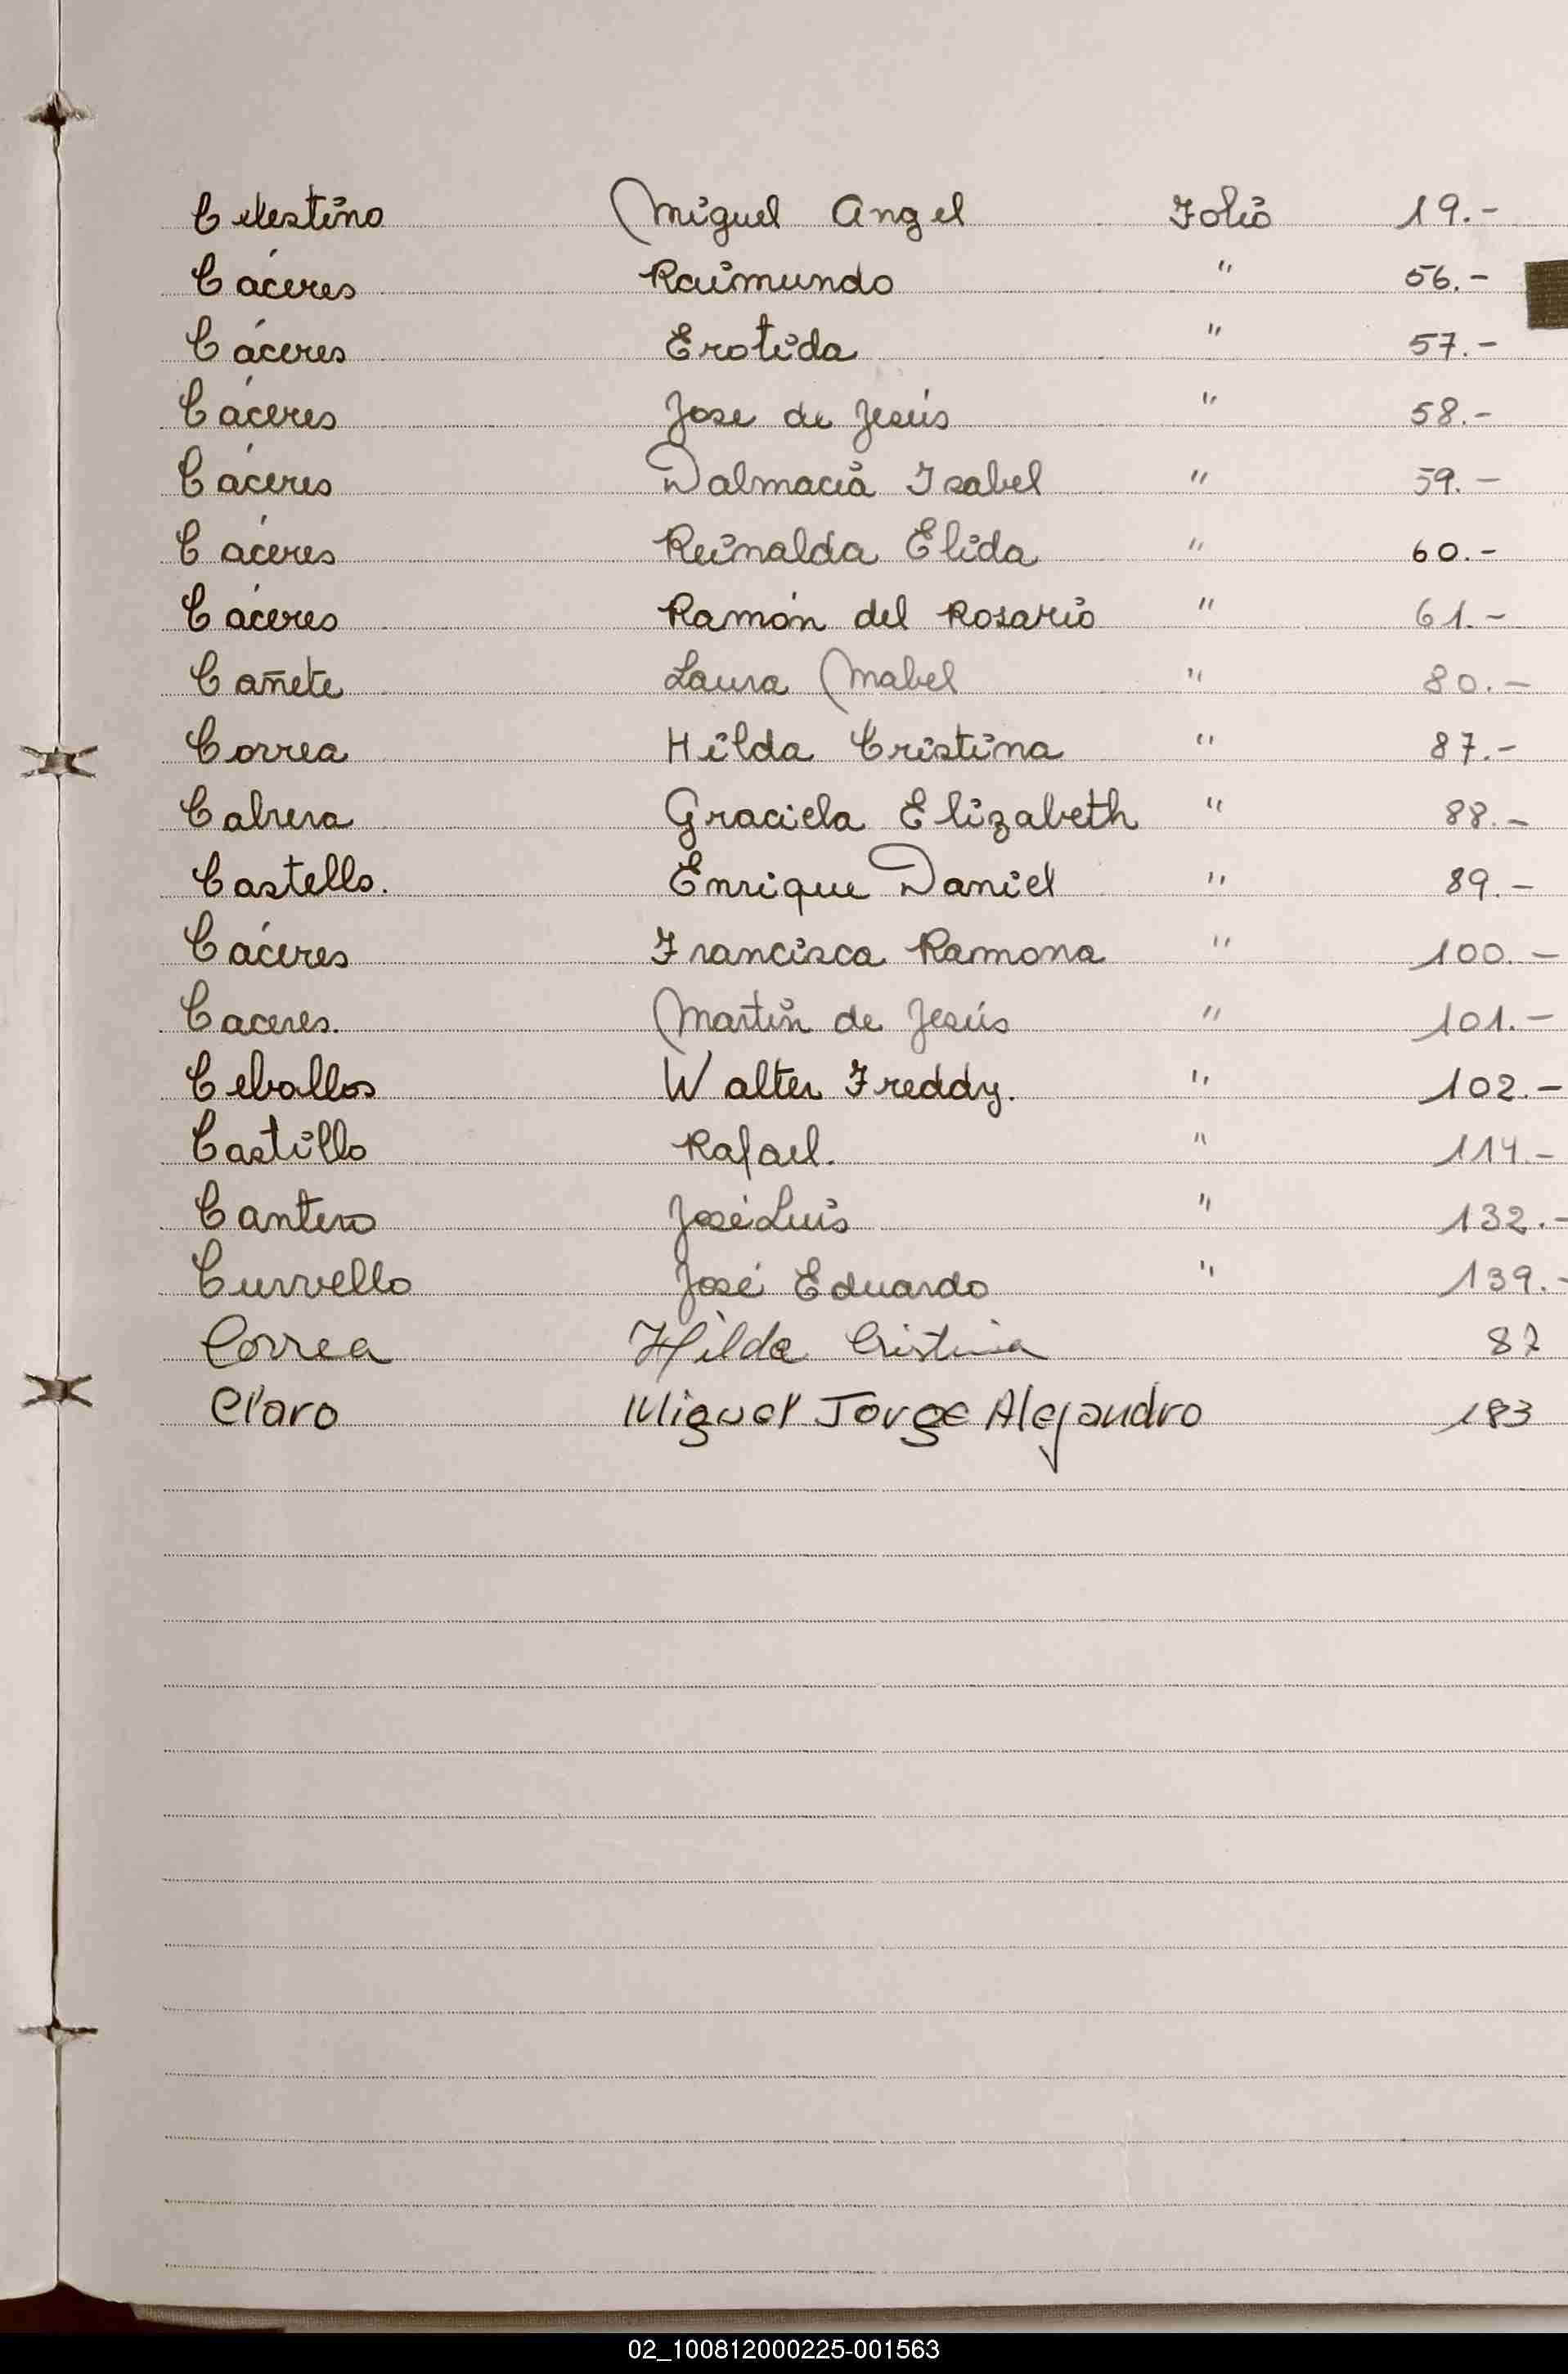 Celestino Miguel Angel Folio 19.-
Cáceres Raimundo " 56.-
Cáceres Erotida " 57.-
Cáceres Jose de Jesús " 58.-
Cáceres Dalmacia Isabel " 59.-
Cáceres Reinalda Elida " 60.-
Cáceres Ramón del Rosario " 61.-
Cañete Laura Mabel " 80.-
Correa Hilda Cristina " 87.-
Cabrera Graciela Elizabeth " 88.-
Castello. Enrique Daniel " 89.-
Cáceres Francisca Ramona " 100.-
Caceres. Martín de Jesús " 101.-
Ceballos Walter Freddy. " 102.-
Castillo Rafael. " 114.-
Cantero José Luis " 132.-
Curvello José Eduardo " 139.-
Correa Hilda Cristina 87
Claro Miguel Jorge Alejandro 183
02_100812000225-001563